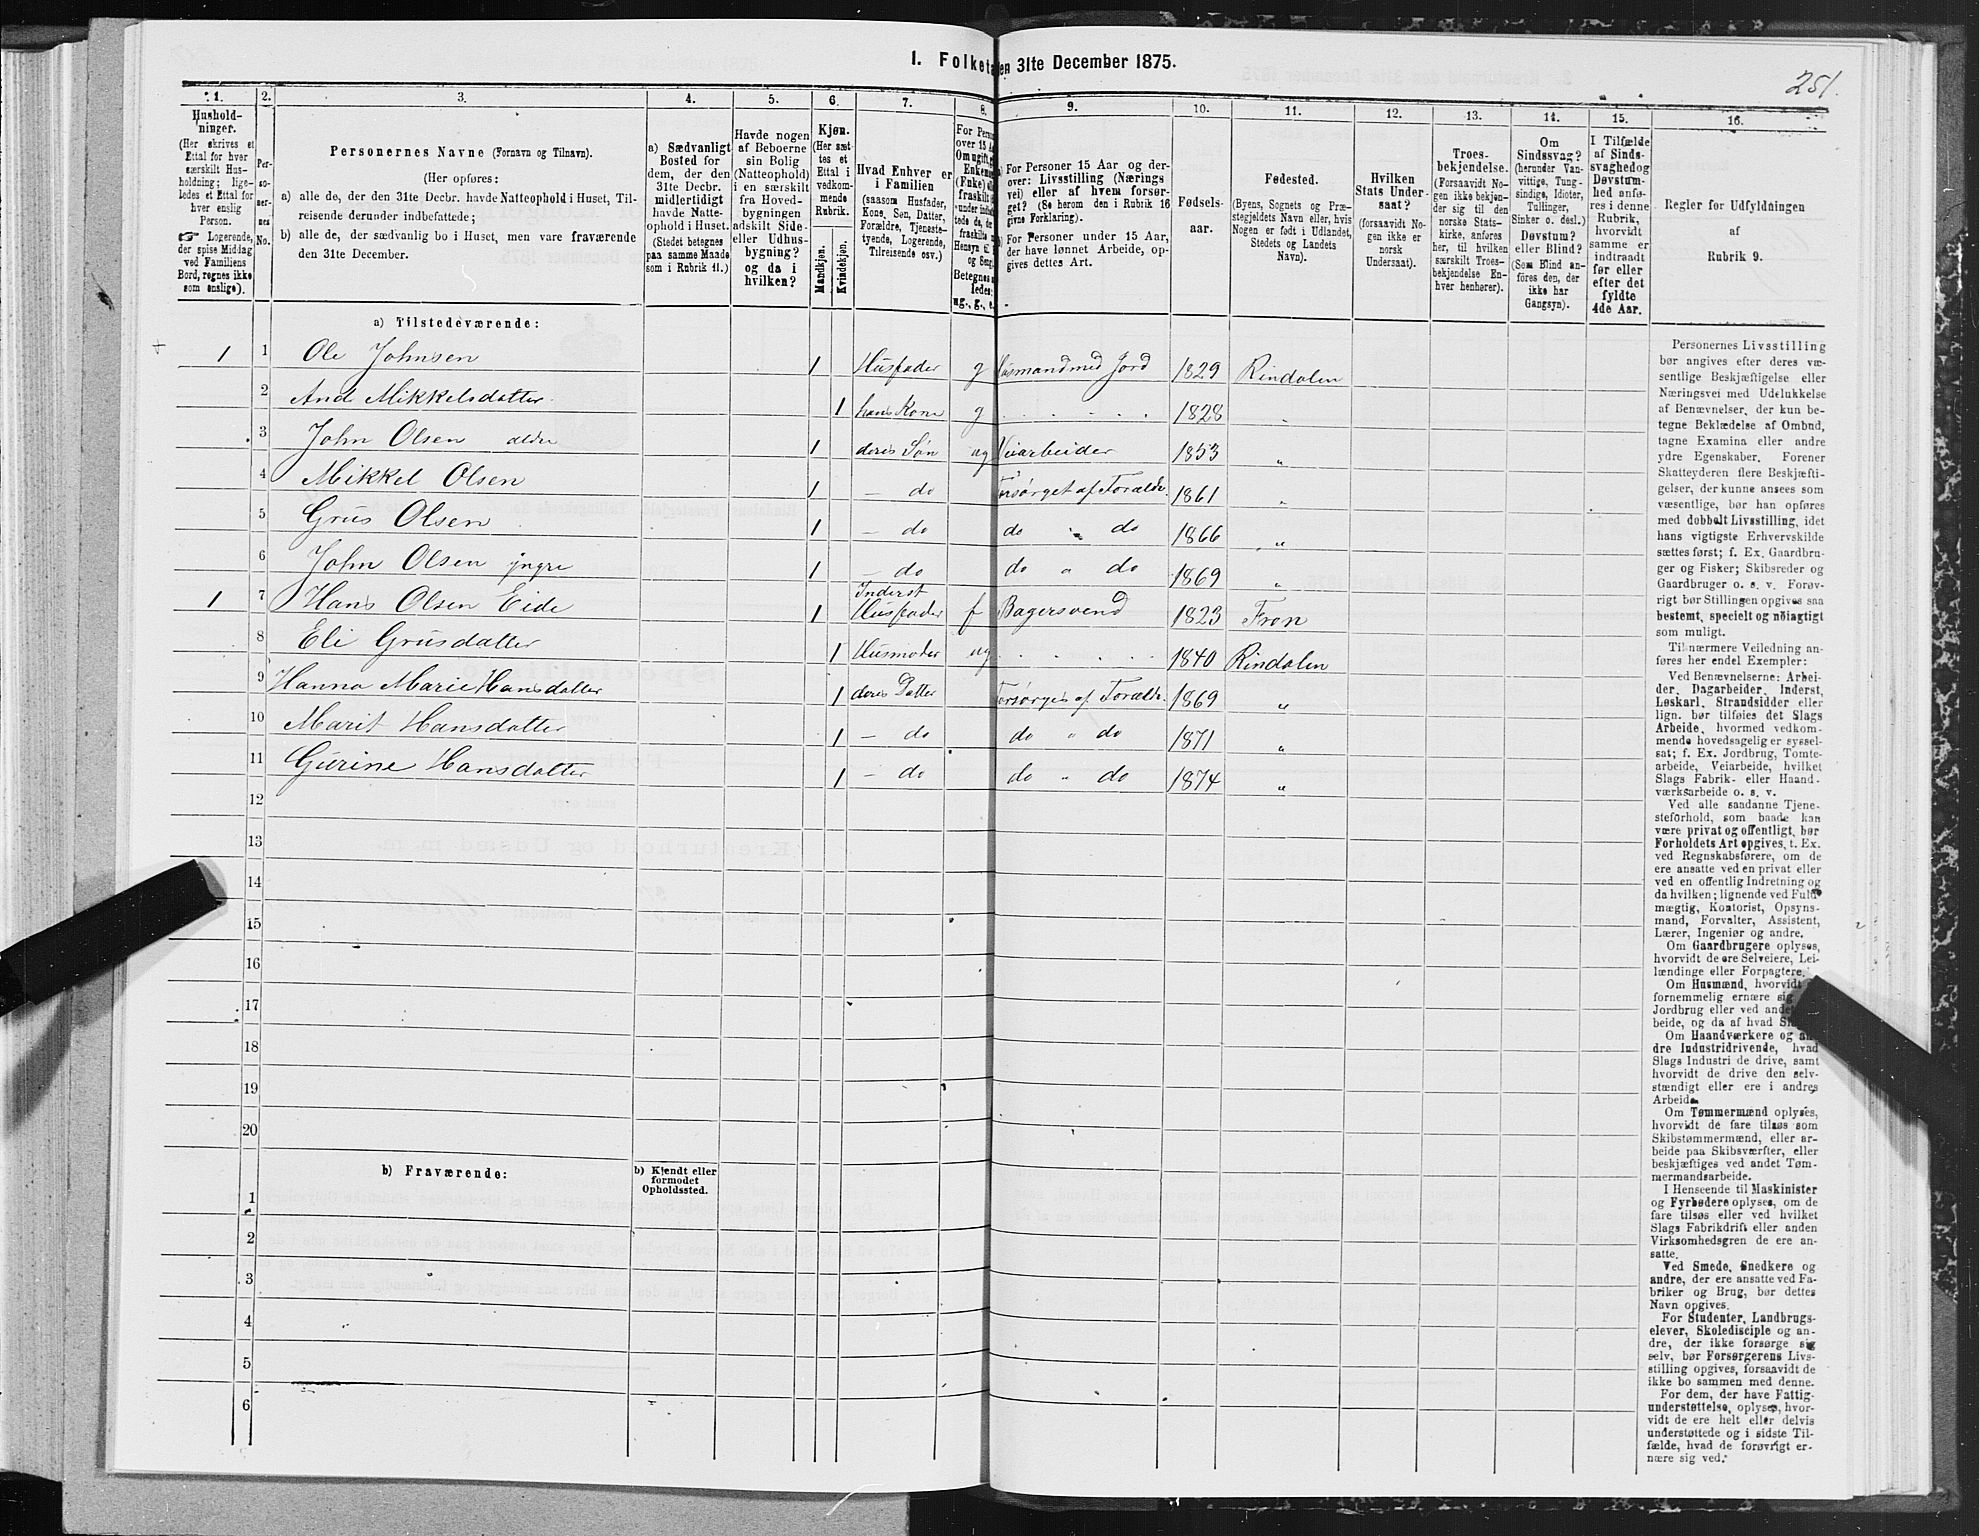 1. Folketæ en 31te December 1875.
251.
1. 2. 3. 4. 5. 6. 7. 8. 9. 10. 11. 12. 13. 14. 15. 16.
Hushold-
ninger.
(Her skrives et
Ettal for hver
særskilt Hus-
holdning; lige-
ledes et Ettal for
hver enslig
Person.
☞ Logerende,
der spise Middag
ved Familiens
Bord, regnes ikke
som enslige).
Per-
so-
ner-
nes
No.
Personernes Navne (Fornavn og Tilnavn).
(Her opføres:
a) alle de, der den 31te Decbr. havde Natteophold i Huset, Til-
reisende derunder indbefattede;
b) alle de, der sædvanlig bo i Huset, men vare fraværende
den 31te December.
a) Sædvanligt
Bosted for
dem, der den
31te Decbr.
midlertidigt
havde Natte-
ophold i Huset.
(Stedet betegnes
paa samme Maade
som i Rubrik 11.)
Havde nogen
af Beboerne
sin Bolig
(Natteophold)
i en særskilt
fra Hoved-
bygningen
adskilt Side-
eller Udhus-
bygning?
og da i
hvilken?
Kjøn.
(Her sæt-
tes et
Ettal i
vedkom-
mende
Rubrik.
Mandkjøn.
Kvindekjøn.
Hvad Enhver er
i Familien
(saasom Husfader,
Kone, Søn, Datter,
Forældre, Tjeneste-
tyende, Logerende,
Tilreisende osv.)
For Perso
over 15 A
Om ugift, g
Enkem
(Enke) e
fraskilt
under indb
tede de, de
fraskilte
Hensyn til
og Seng
Betegnes
ledes:
ug., g., e.
a) For Personer 15 Aar og der-
over: Livsstilling (Nærings
vei) eller af hvem forsør-
get? (Se herom den i Rubrik 16
givne Forklaring).
b) For Personer under 15 Aar,
der have lønnet Arbeide, op-
gives dettes Art.
Fødsels-
aar.
Fødested.
(Byens, Sognets og Præ-
stegjeldets Navn eller, hvis
Nogen er født i Udlandet,
Stedets og Landets
Navn).
Hvilken
Stats Under-
saat?
(forsaavidt No-
gen ikke er
norsk
Undersaat).
Troes-
bekjendelse.
(Forsaavidt No-
gen ikke bekjen-
der sig til den
norske Stats-
kirke, anføres
her, til hvilken
særskilt Troes-
bekjendelse En-
hver henhører).
Om
Sindssvag?
(herunder Van-
vittige, Tung-
sindige, Idioter,
Tullinger,
Sinker o. desl.)
Døvstum?
eller Blind?
(Som Blind an-
føres den, der
ikke har
Gangsyn).
I Tilfælde
af Sinds-
svaghed og
Døvstum-
hed anfø-
res i denne
Rubrik,
hvorvidt
samme er
indtraadt
før eller
efter det
fyldte
4de Aar.
Regler for Udfyldningen
af
Rubrik 9.
a) Tilstedeværende:
1 1 Ole Johnsen 1 Husfader g Husmand med Jord 1829 Rindalen
2 And Mikkelsdatter 1 hans Kone g 1828 "
3 John Olsen ældre 1 deres Søn ug Veiarbeider 1853 "
4 Mikkel Olsen 1 – do Forsørget af Foræld. 1861 "
5 Grus Olsen 1 – do do " do 1866 "
6 John Olsen yngre 1 – do do " do 1869 "
1 7 Hans Olsen Eide 1 Inderst Husfader f Bagersvend 1823 Fron
8 Eli Grusdatter 1 Husmoder ug 1840 Rindalen
9 Hanna Marie Hansdatter 1 deres Datter Forsørges af Foræld. 1869 "
10 Marit Hansdatter 1 – do do " do 1871 "
11 Gurine Hansdatter 1 – do do " do 1874 "
12
13
14
15
16
17
18
19
20
b) Fraværende:
b) Kjendt eller
formodet
Opholdssted.
1
2
3
4
5
6
Personernes Livsstilling
bør angives efter deres væ-
sentlige Beskjæftigelse eller
Næringsvei med Udelukkelse
af Benævnelser, der kun be-
tegne Beklædelse af Ombud,
tagne Examina eller andre
ydre Egenskaber. Forener
Skatteyderen flere Beskjæfti-
gelser, der kunne ansees som
væsentlige, bør han opføres
med dobbelt Livsstilling, idet
hans vigtigste Erhvervskilde
sættes først; f. Ex. Gaardbru-
ger og Fisker; Skibsreder og
Gaardbruger o. s. v. Forøv-
rigt bør Stillingen opgives saa
bestemt, specielt og nøiagtigt
som muligt.
Til nærmere Veiledning an-
føres her endel Exempler:
Ved Benævnelserne: Arbei-
der, Dagarbeider, Inderst,
Løskarl, Strandsidder eller
lign. bør tilføies det Slags
Arbeide, hvormed vedkom-
mende hovedsagelig er syssel-
sat; f. Ex. Jordbrug, Tomte-
arbeide, Veiarbeide, hvilket
Slags Fabrik- eller Haand-
værksarbeide o. s. v.
Ved alle saadanne Tjene-
steforhold, som baade kan
være privat og offentligt, bør
Forholdets Art opgives, t. Ex.
ved Regnskabsførere, om de
ere ansatte ved en privat eller
ved en offentlig Indretning og
da hvilken; lignende ved Fuld-
mægtig, Kontorist, Opsyns-
mand, Forvalter, Assistent,
Lærer, Ingeniør og andre.
Om Gaardbrugere oplyses,
hvorvidt de ere Selveiere, Lei-
lændinge eller Forpagtere.
Om Husmænd, hvorvidt
fornemmelig ernære sig
Jordbrug eller ved ande
beide, og da af hvad Sl
Om Haandværkere og an-
dre Industridrivende, hvad
Slags Industri de drive, samt
hvorvidt de drive den selv-
stændigt eller ere i andres
Arbeide.
Om Tømmermænd oplyses,
hvorvidt de fare tilsøs som
Skibstømmermænd, eller ar-
beide paa Skibsværfter, eller
beskjæftiges ved andet Tøm-
mermandsarbeide.
I Henseende til Maskinister
og Fyrbødere oplyses, om de
fare tilsøs eller ved hvilket
Slags Fabrikdrift eller anden
Virksomhedsgren de ere an-
satte.
Ved Smede, Snedkere og
andre, der ere ansatte ved Fa-
briker og Brug, bør dettes
Navn opgives.
For Studenter, Landbrugs-
elever, Skoledisciple og an-
dre, der ikke forsørge sig
selv, bør Forsørgerens Livs-
stilling opgives, forsaavidt de
ikke bo sammen med denne.
For dem, der have Fattig-
understøttelse, oplyses, hvor-
vidt de ere helt eller delvis
understøttede og i sidste Til-
fælde, hvad de forøvrigt er-
nære sig ved.